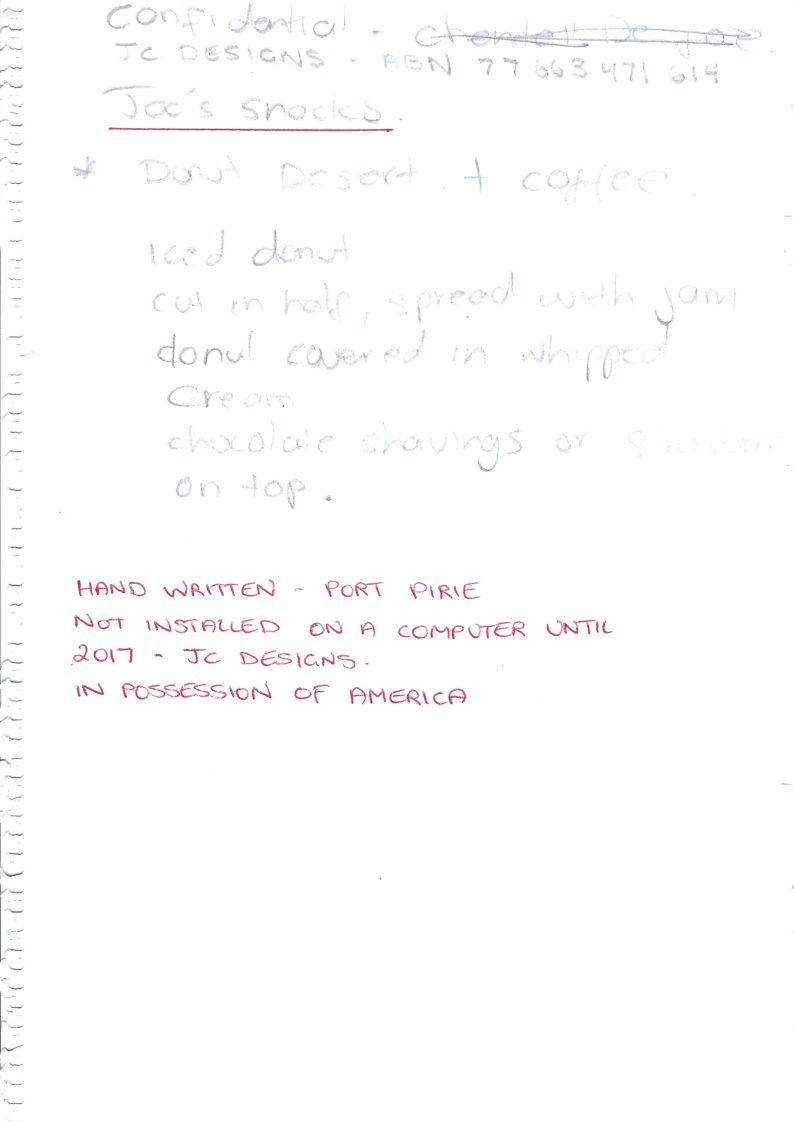 Confidential -
JC DESIGNS - ABN 77 663 471 614
Joe's Snacks.
* Donut Desert. + coffee.
Iced donut
cut in half, spread with jam
donut covered in whipped
Cream
chocolate shavings or
on top.
HAND WRITTEN - PORT PIRIE
NOT INSTALLED ON A COMPUTER UNTIL
2017 - JC DESIGNS.
IN POSSESSION OF AMERICA